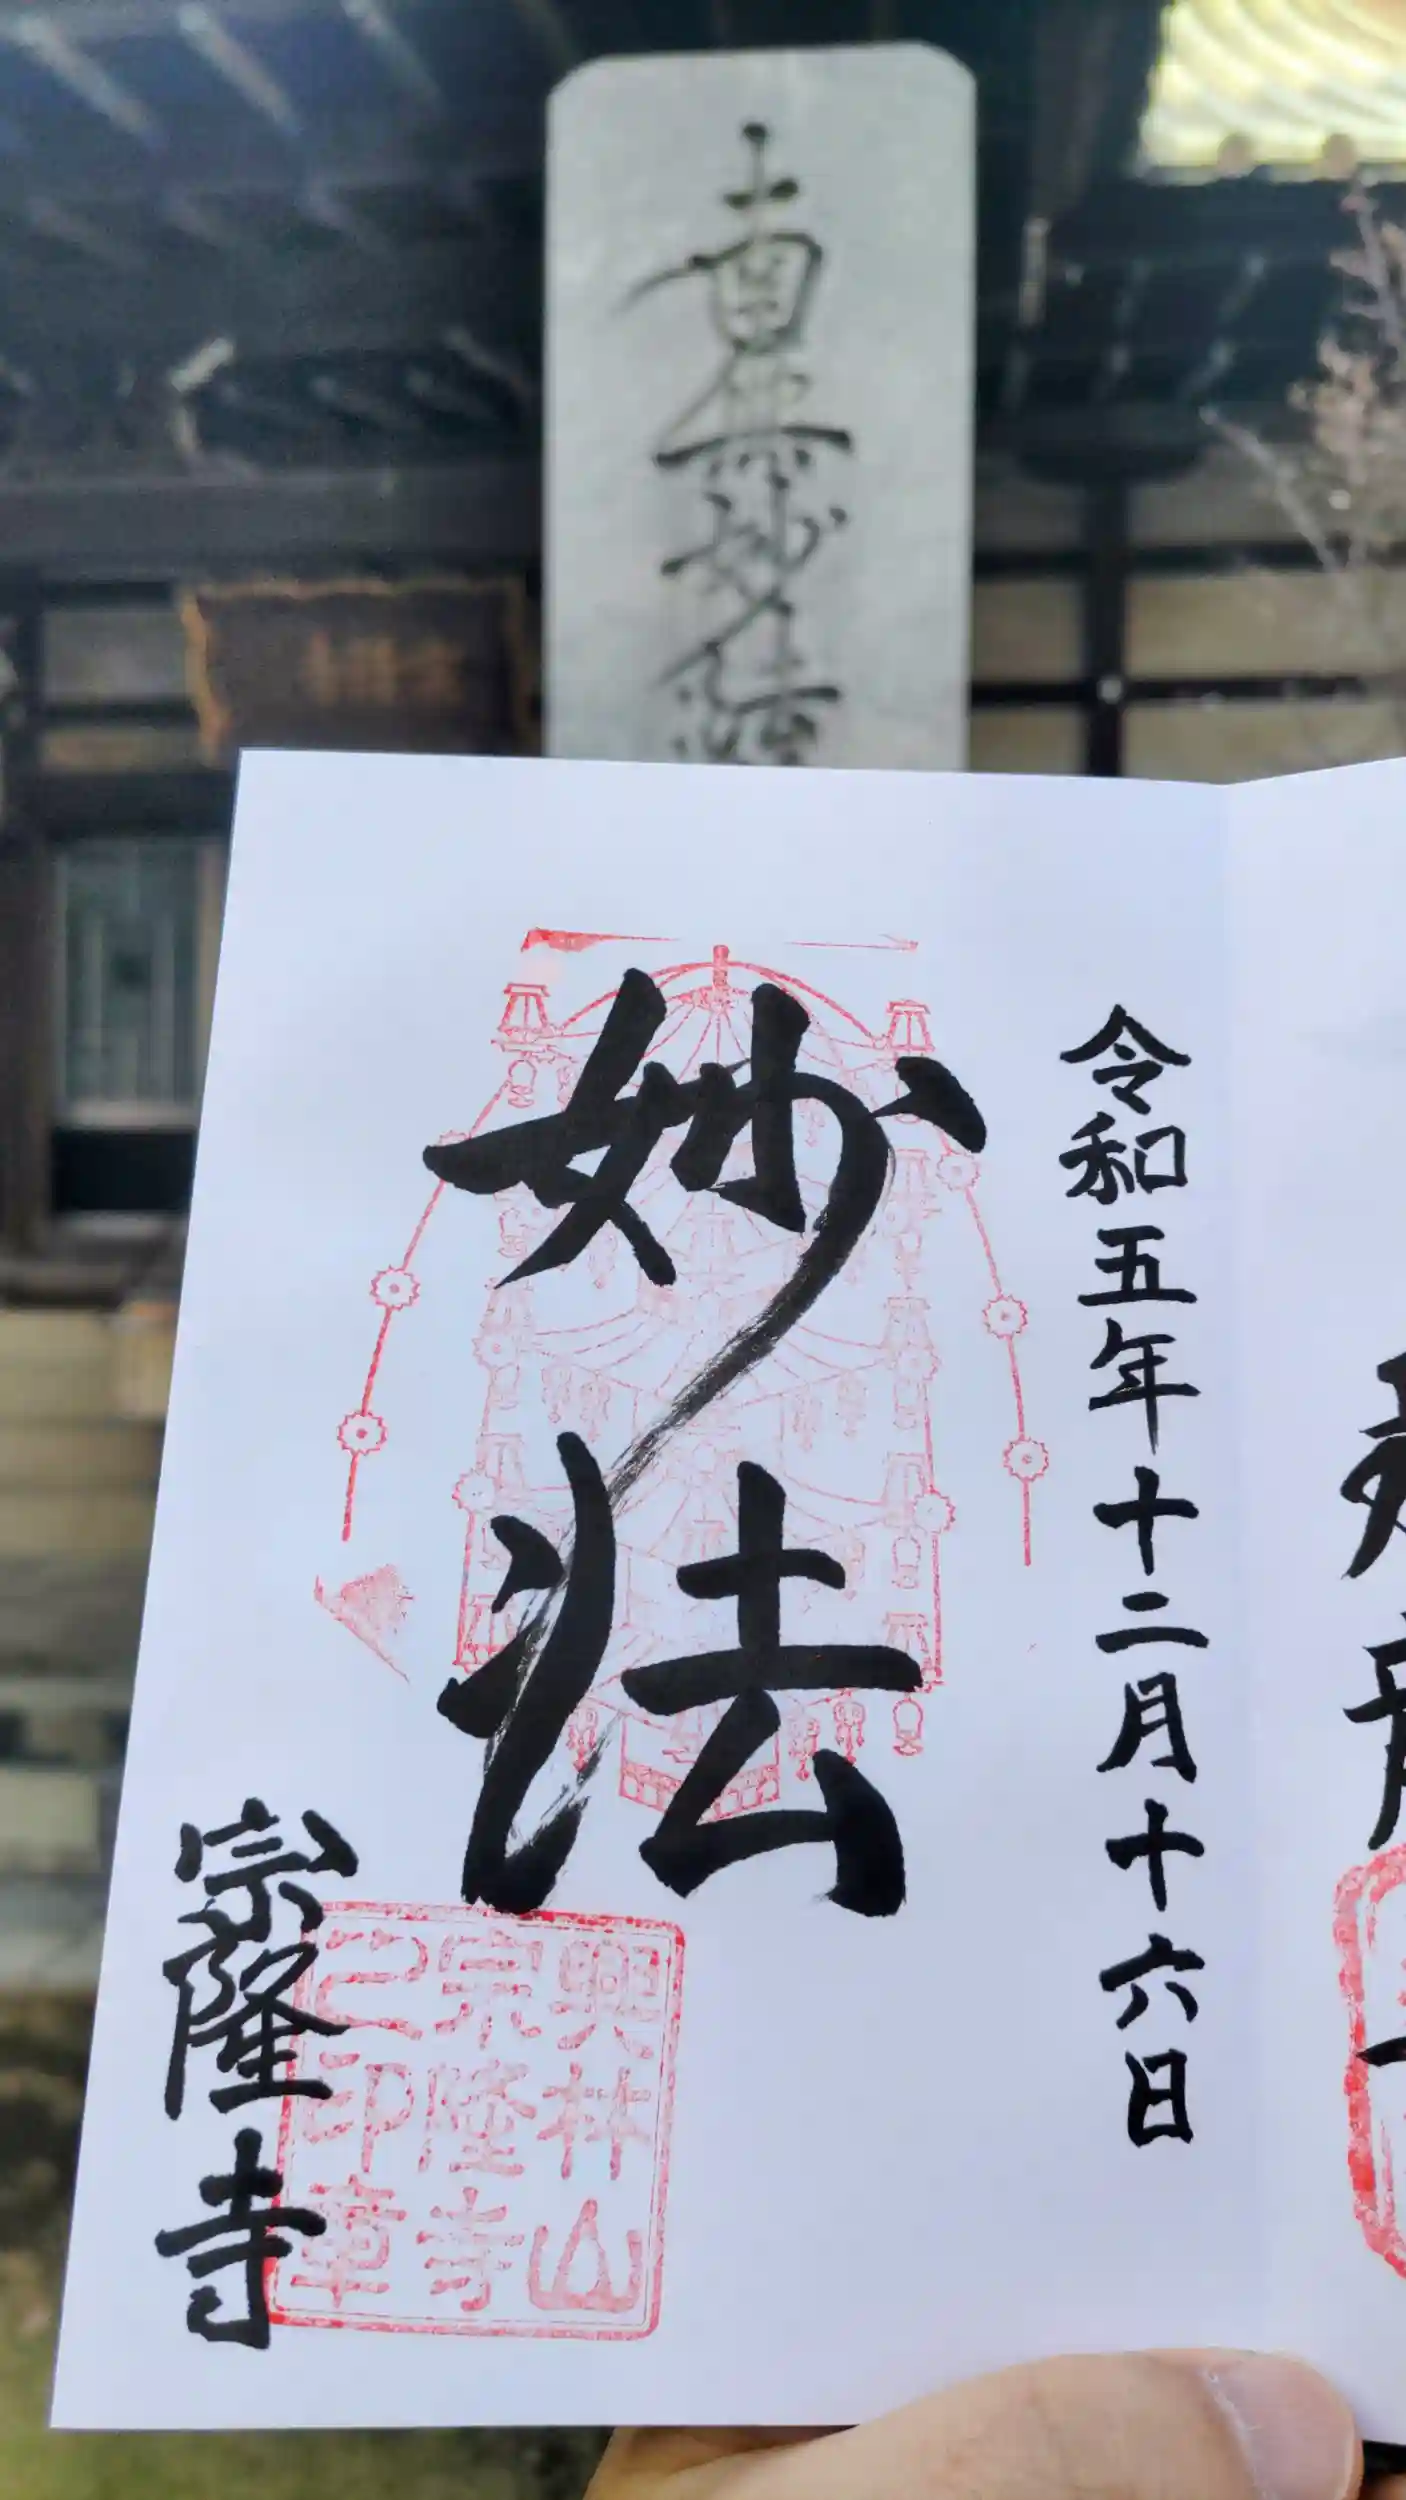 南無妙法
令和五年十二月十六日
妙法
宗隆寺
興林山
宗隆寺
之印章